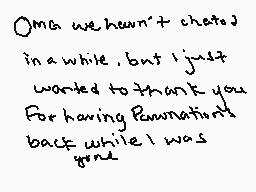 OMG we havn't chated
in a while, but I just
wanted to thank you
For having
back while I was
gone